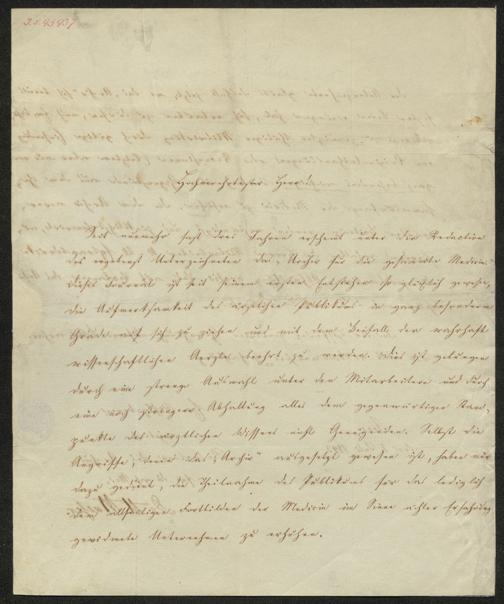 Hochverehrtester Herr!
Seit nunmehr fast drei Jahren erscheint unter der Redaction
des ergebenst Unterzeichneten das Archiv für die gesammte Medicin.
Dieses Journal ist seit seinem ersten Entstehen so glücklich gewesen,
die Aufmerksamkeit des ärztlichen Publikums in ganz besonderm
Grade auf sich zu ziehen und mit dem Beifall der wahrhaft
wissenschaftlichen Aerzte beehrt zu werden. Dies ist gelungen
durch eine strenge Auswahl unter den Mitarbeitern und durch
eine noch strengere Abhaltung alles dem gegenwärtigen Stand-
punkte des ärztlichen Wissens nicht Genügenden. Selbst die
Angriffe, denen das „Archiv“ ausgesetzt gewesen ist, haben nur
dazu gedient, die Theilnahme des Publikums für das lediglich
dem Fortbilden der Medicin im Sinne ächter Erfahrung
gewidmete Unternehmen zu erhöhen.